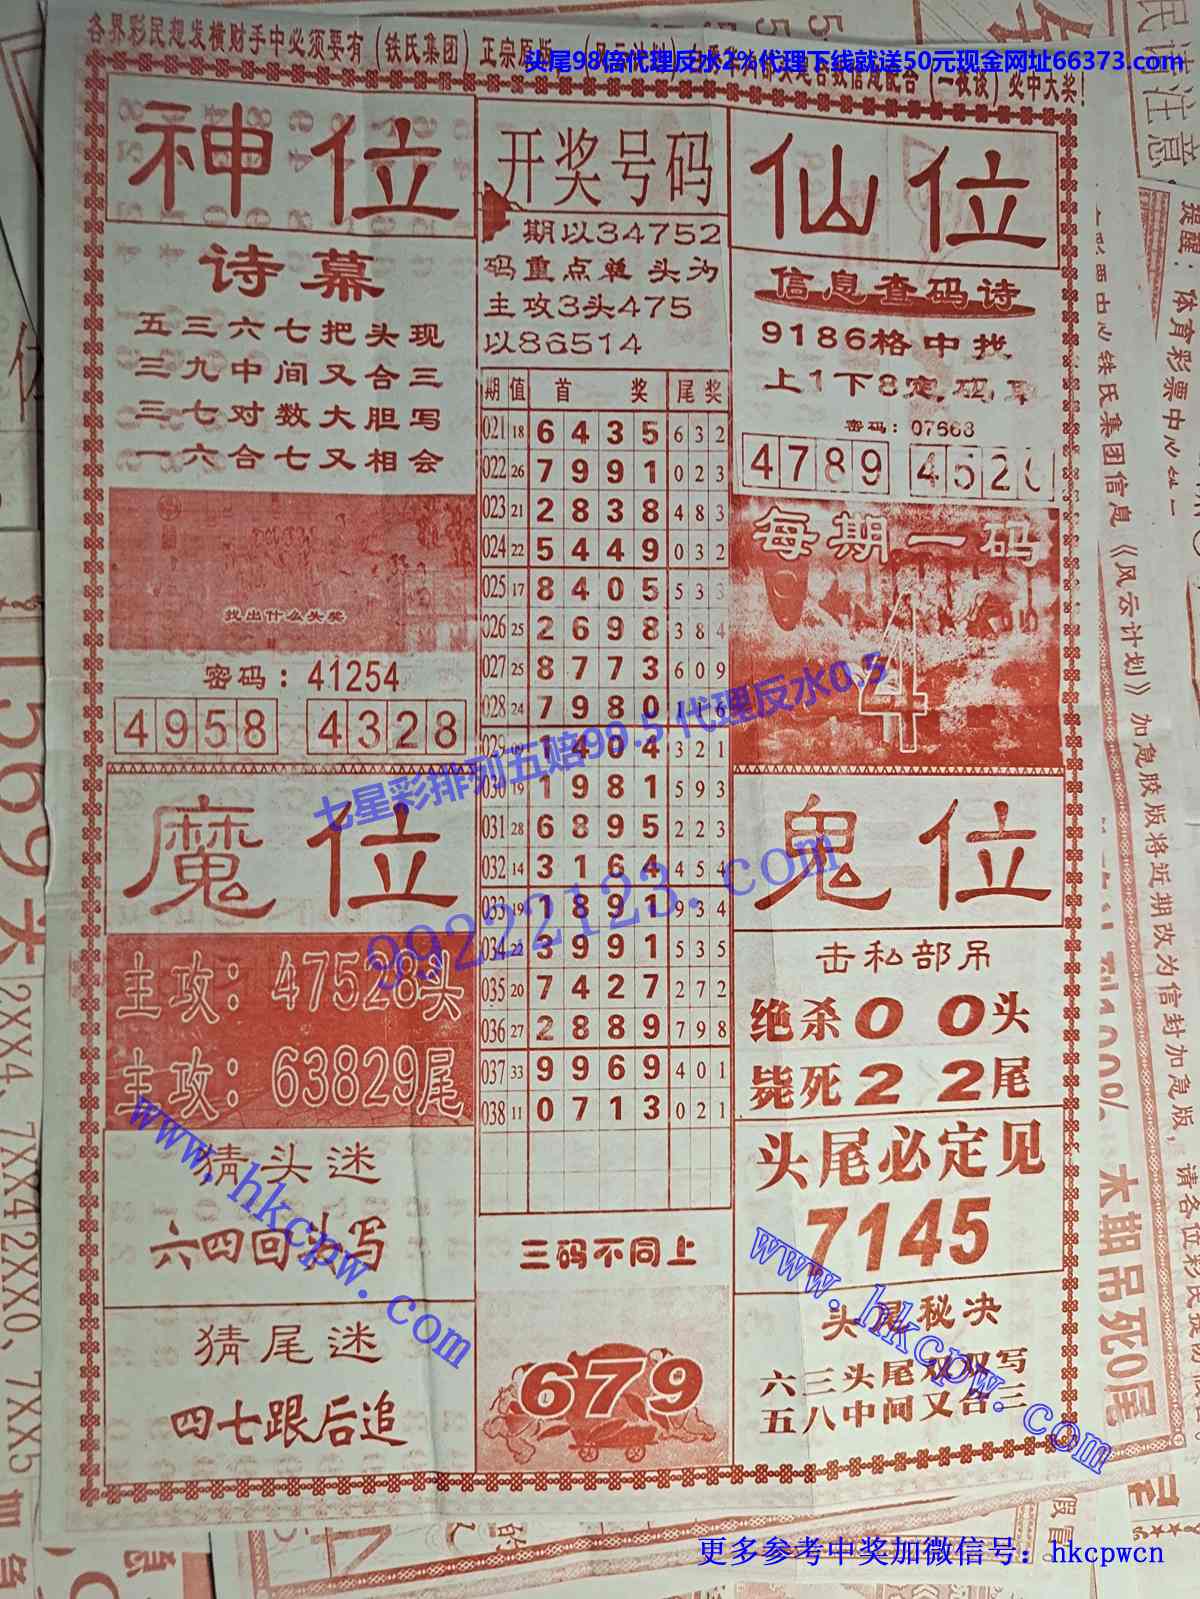 各界彩民想发横财手中必须要有（铁氏集团）正宗原版
必中大奖！
头尾98倍代理反水2%代理下线就送50元现金网址66373.com
神位
诗幕
五三六七把头现
三九中间又合三
三七对数大胆写
一六合七又相会
找出什么头奖
密码：41254
4958 4328
魔位
主攻：47528头
主攻：63829尾
猜头迷
六四回头写
猜尾迷
四七跟后追
开奖号码
期以34752
码重点单 头为
主攻3头475
以86514
期 值 首 奖 尾奖
021 18 6 4 3 5 6 3 2
022 26 7 9 9 1 0 2 3
023 21 2 8 3 8 4 8 3
024 22 5 4 4 9 0 3 2
025 17 8 4 0 5 5 3 3
026 25 2 6 9 8 3 8 4
027 25 8 7 7 3 6 0 9
028 24 7 9 8 0 1 1 6
029 09 1 4 0 4 3 2 1
030 19 1 9 8 1 5 9 3
031 28 6 8 9 5 2 2 3
032 14 3 1 6 4 4 5 4
033 19 1 8 9 1 9 3 4
034 22 3 9 9 1 5 3 5
035 20 7 4 2 7 2 7 2
036 27 2 8 8 9 7 9 8
037 33 9 9 6 9 4 0 1
038 11 0 7 1 3 0 2 1
三码不同上
679
仙位
信息查码诗
9186格中找
上1下8定码
密码：07668
4789 452
每期一码
4
鬼位
击私部吊
绝杀0 0头
毙死2 2尾
头尾必定见
7145
头尾秘决
六三头尾双双写
五八中间又合三
七星彩排列五赔99.5代理反水0.5
99222123.com
www.hkcpw.com
www.hkcpw.com
更多参考中奖加微信号：hkcpwcn
民请注意
提醒：体育彩票中心
铁氏集团信息《风云计划》加急胶版将近期改为信封加急版，请各位彩民提防
本期吊死0尾
569头
2XX4、7XX42XX0、7XX5